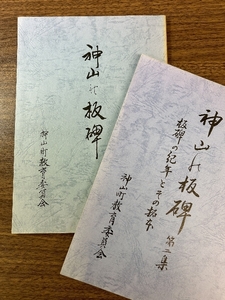 神山の板碑
神山町教育委員会
神山の板碑 第二集
板碑の紀年とその拓本
神山町教育委員会